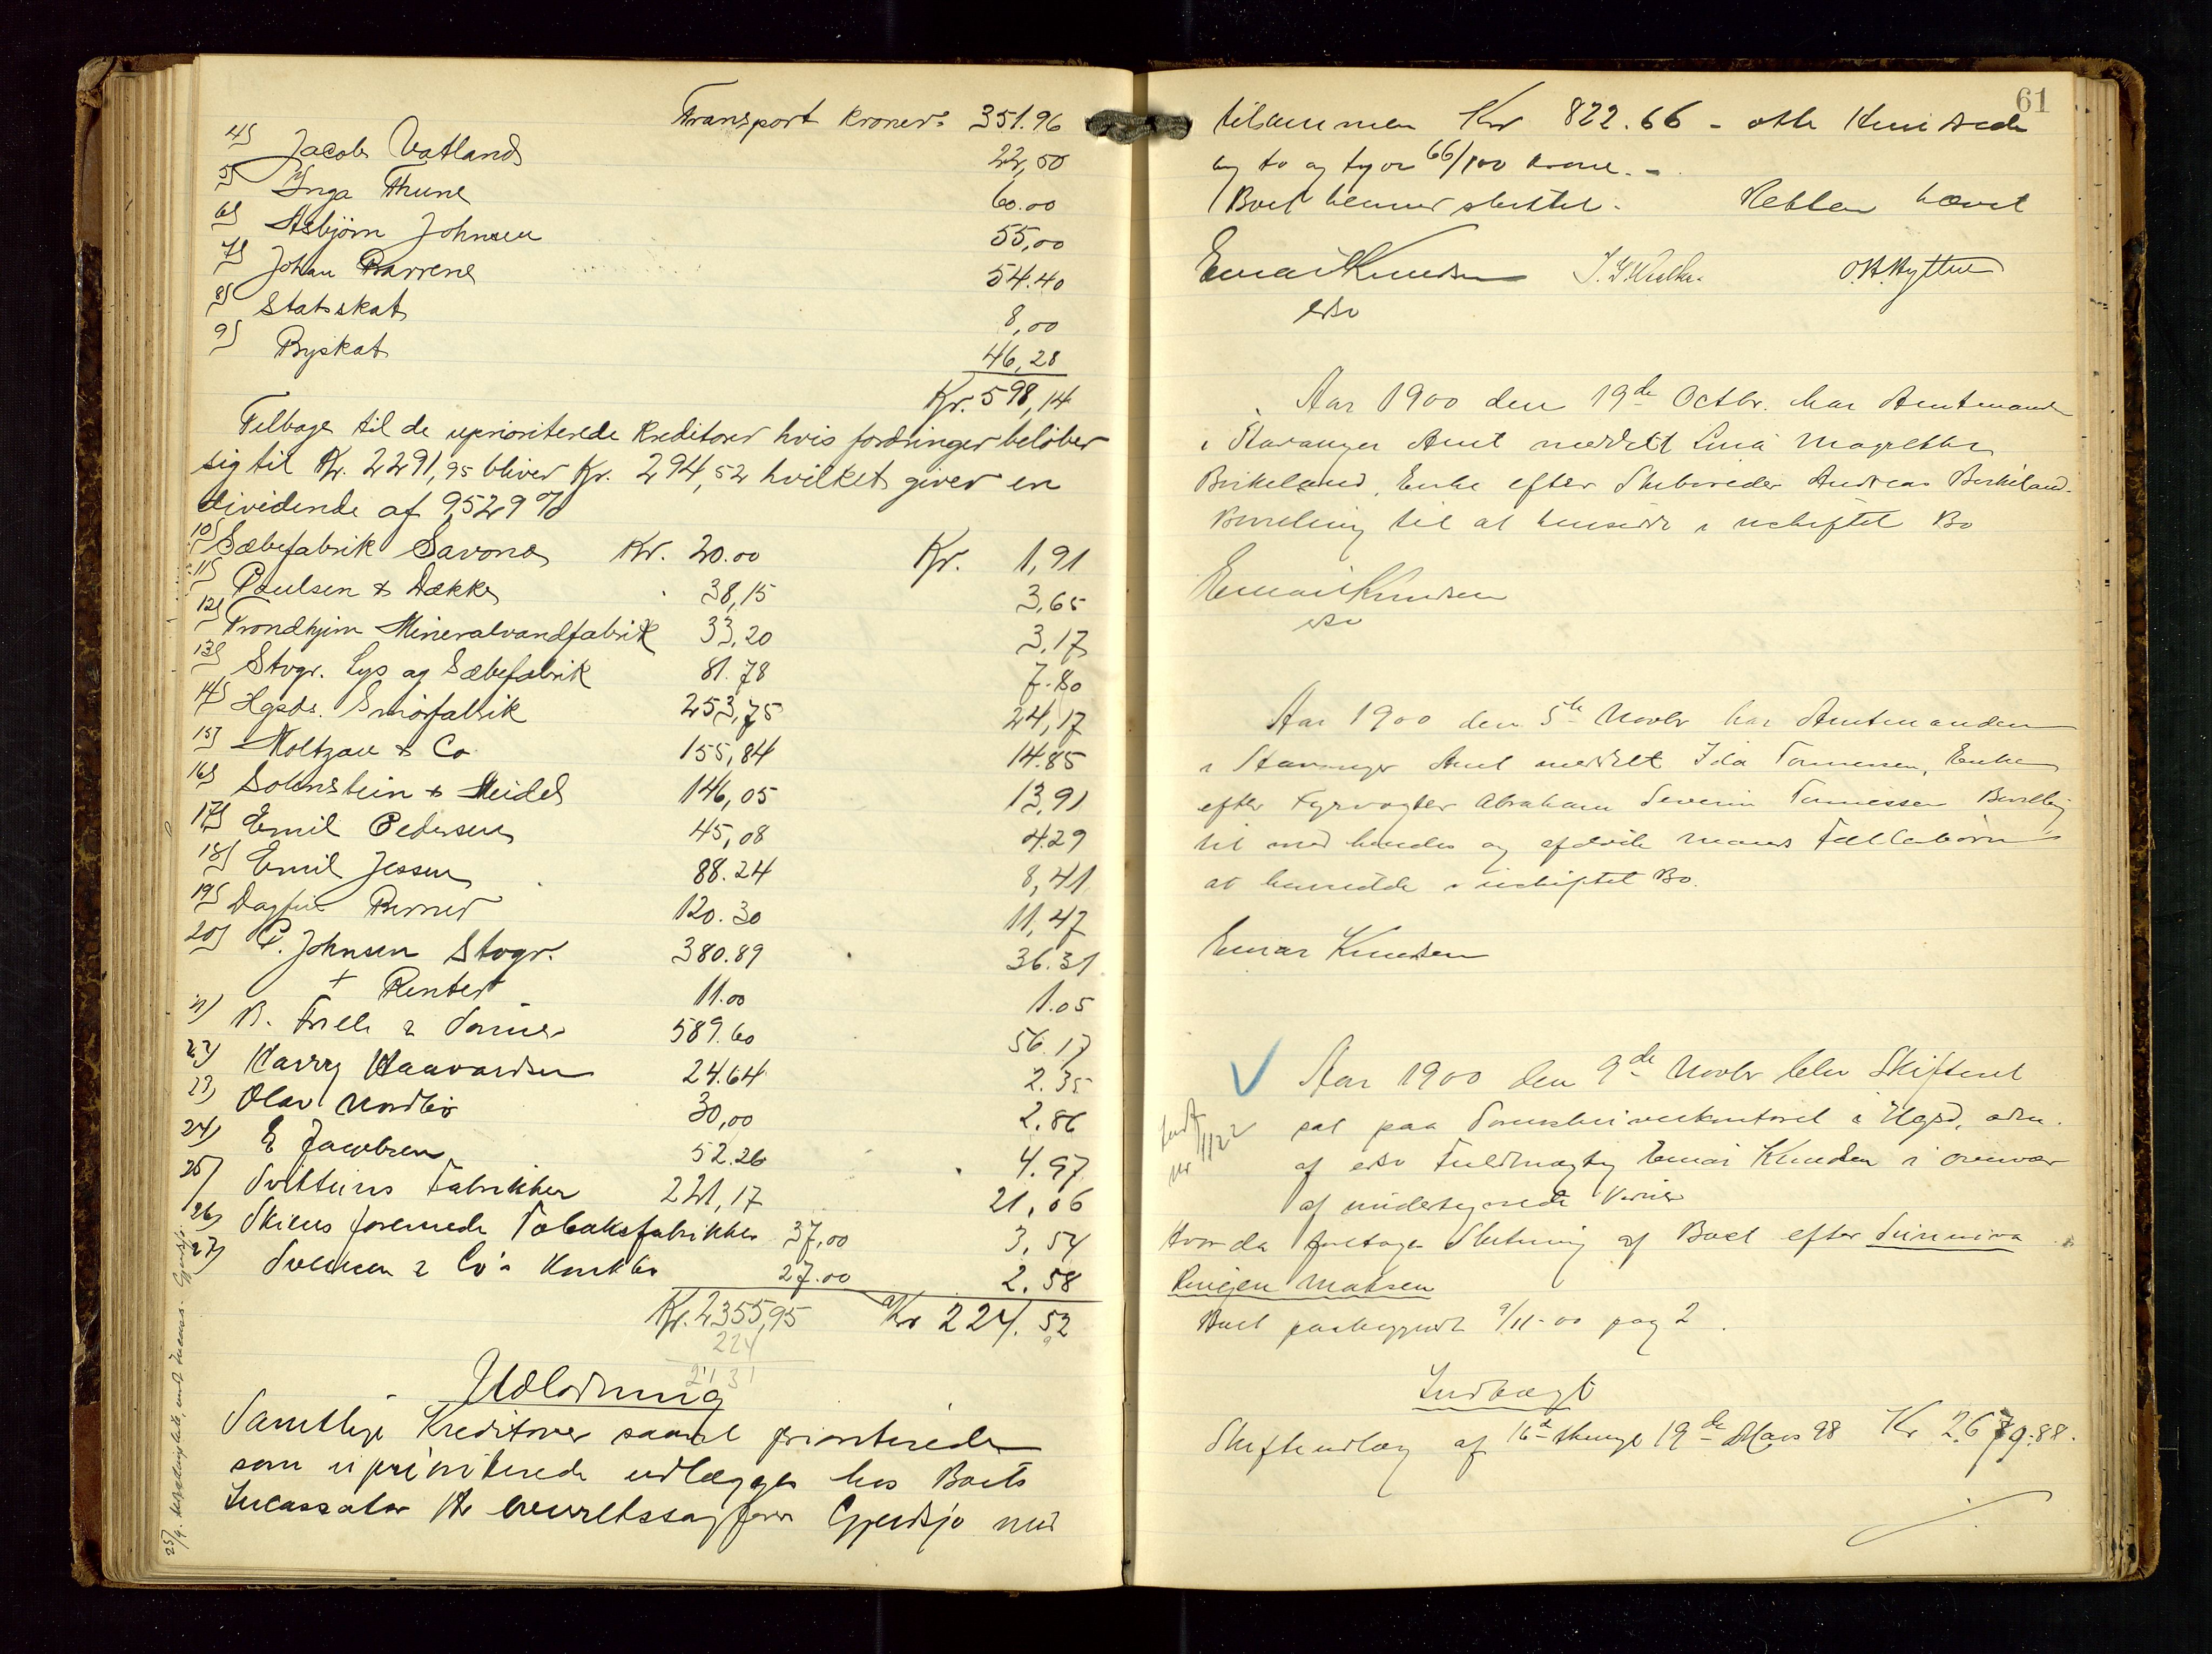 Transport kroner: 351.96
4) Jacob Vatland 22,50
5) Inga Thune 60.00
6) Asbjørn Johnsen 55,00
7) Johan Barrene 54.40
8) Statsskat 8,00
9) Byskat 46,28
Kr. 598,14
Tilbage til de uprioriterede kreditorer hvis fordringer beløber
sig til Kr. 2291,95 bliver Kr. 294,52 hvilket giver en
dividende af 9,529 %
10) Sæbefabrik Savona Kr. 20.00 Kr. 1,91
11) Paulsen & Dække 38,15 3,65
12) Trondhjem Mineralvandfabrik 33,20 3,17
13) Stvgr. Lys og Sæbefabrik 81.78 7.80
14) Hgsds. Smørfabrik 253,75 24,17
15) Moltzau & Co 155,84 14.85
16) Sohnstein & Meidel 146,05 13,91
17) Emil Pedersen 45,08 4.29
18) Emil Jessen 88.24 8,41
19) Dagfin Berner 120.30 11,47
20) P. Johnsen Stvgr. 380.89 36.31
+ Renter 11.00 1.05
21) B. Friele & Sønner 589.60 56.17
22) Harry Haavardsen 24.64 2.35
23) Olav Nordbø 30,00 2.86
24) E Jacobsen 52.26 4.97
25) Fabrikker 221,17 21,06
26) Skiens forenede Tobaksfabrikker 37,00 3,54
27) Svensen & Co's Konkbo 27.00 2.58
Kr. 2355,95 Kr 224.52
224
2131
Udlodning
Samtlige Kreditorer saavel prioriterede
som uprioriterede udlægges hos Boets
Incassator Hr overretssagfører Gjerdsjø med
61
tilsammen Kr 822.66 - otte Hundrede
og to og tyve 66/100 krone. -
Boet hermed sluttet. Retten hævet
Einar Knudsen O.H. Hytten
edsv
Aar 1900 den 19de Octbr. har Amtmanden
i Stavanger Amt meddelt Lina Magrethe
Birkeland, Enke efter Skibsreder Andreas Birkeland
Bevilling til at hensidde i uskiftet Bo
Einar Knudsen
edsv
Aar 1900 den 5te Novbr har Amtmanden
i Stavanger Amt meddelt Ida Tønnessen, Enke
efter Fyrvogter Abraham Severin Tønnessen Bevilling
til med hendes og afdøde Mands Fællesbørn
at hensidde i uskiftet Bo.
Einar Knudsen
Aar 1900 den 9de Novbr blev Skifteret
sat paa Sorenskriverkontoret i Hgsd, adm.
af edsv Fuldmægtig Einar Knudsen i overvær
af undertegnede Vidner
Hvor da foretages Slutning af Boet efter Sunniva
Madsen
Boet paabegyndt 9/11-00 pag 2.
Indtægt
Skifteudlæg af 16de slutn. 19de Mars 98 Kr 2.679.88.